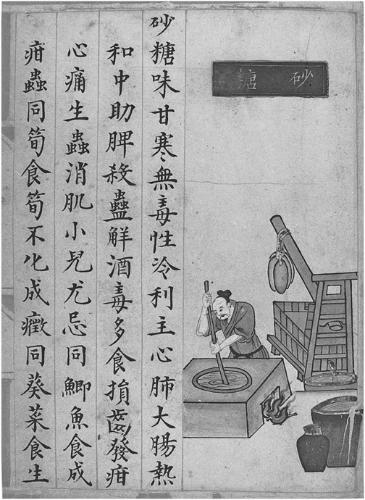 砂糖
砂糖味甘寒無毒性冷利主心肺大腸熱
和中助脾殺蠱觧酒毒多食損齒發疳
心痛生蟲消肌小兒尤忌同鯽魚食成
疳蟲同筍食筍不化成癥同葵菜食生